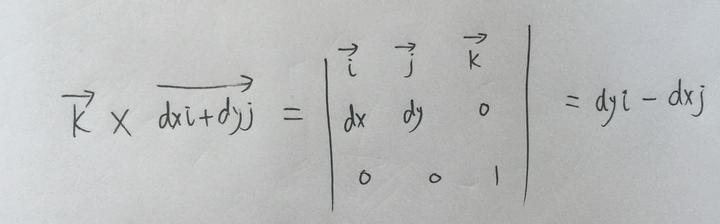 \vec{k} × \overrightarrow{dxi+dyj} = \begin{vmatrix} \vec{i} & \vec{j} & \vec{k} \\ dx & dy & 0 \\ 0 & 0 & 1 \end{vmatrix} = dyi - dxj